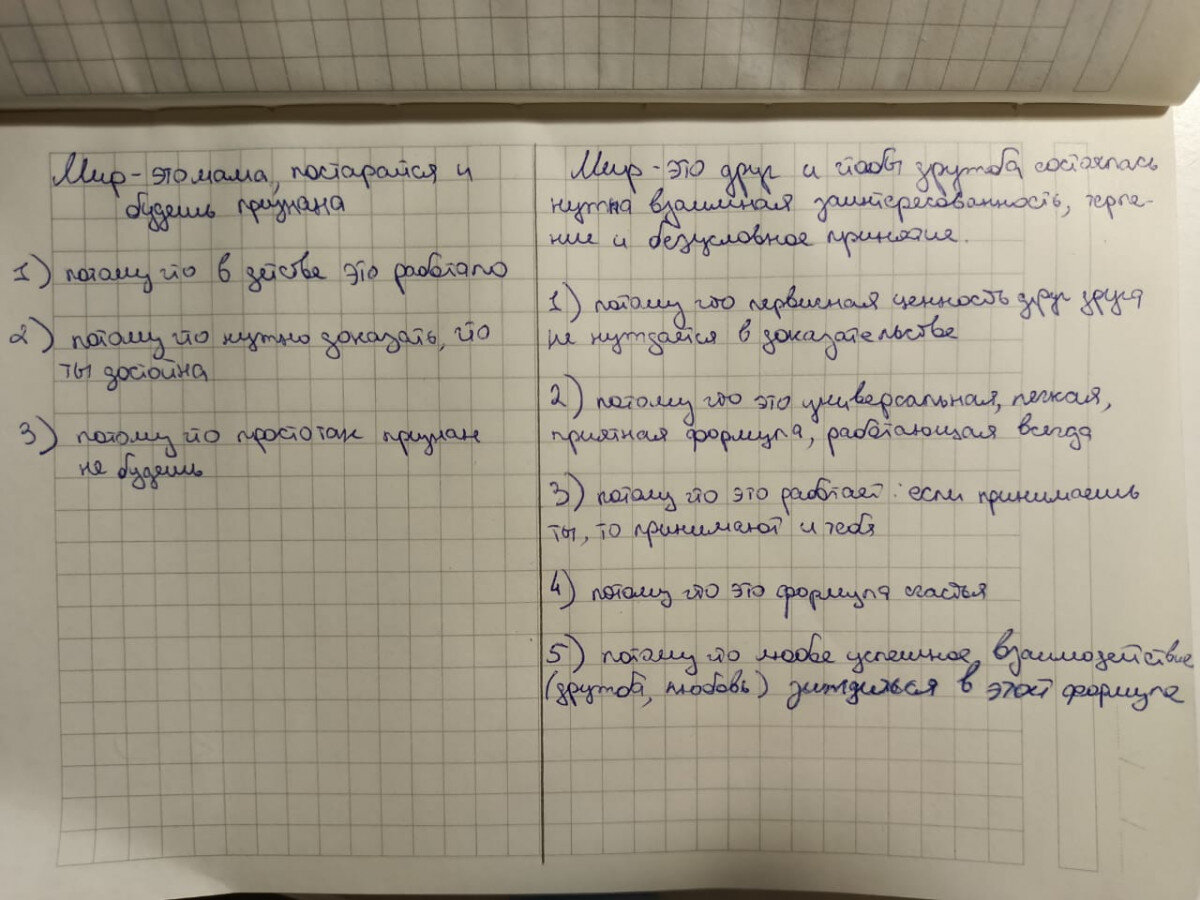 Мир - это мама, постарайся и
будешь признана
1) потому что в детстве это работало
2) потому что нужно доказать, что
ты достойна
3) потому что просто так признан
не будешь
Мир - это друг и чтобы дружба состоялась
нужна взаимная заинтересованность, терпе-
ние и безусловное принятие.
1) потому что первичная ценность друг друга
не нуждается в доказательстве
2) потому что это универсальная, легкая,
приятная формула, работающая всегда
3) потому что это работает: если принимаешь
ты, то принимают и тебя
4) потому что это формула счастья
5) потому что любое успешное взаимодействие
(дружба, любовь) зиждиться в этой формуле